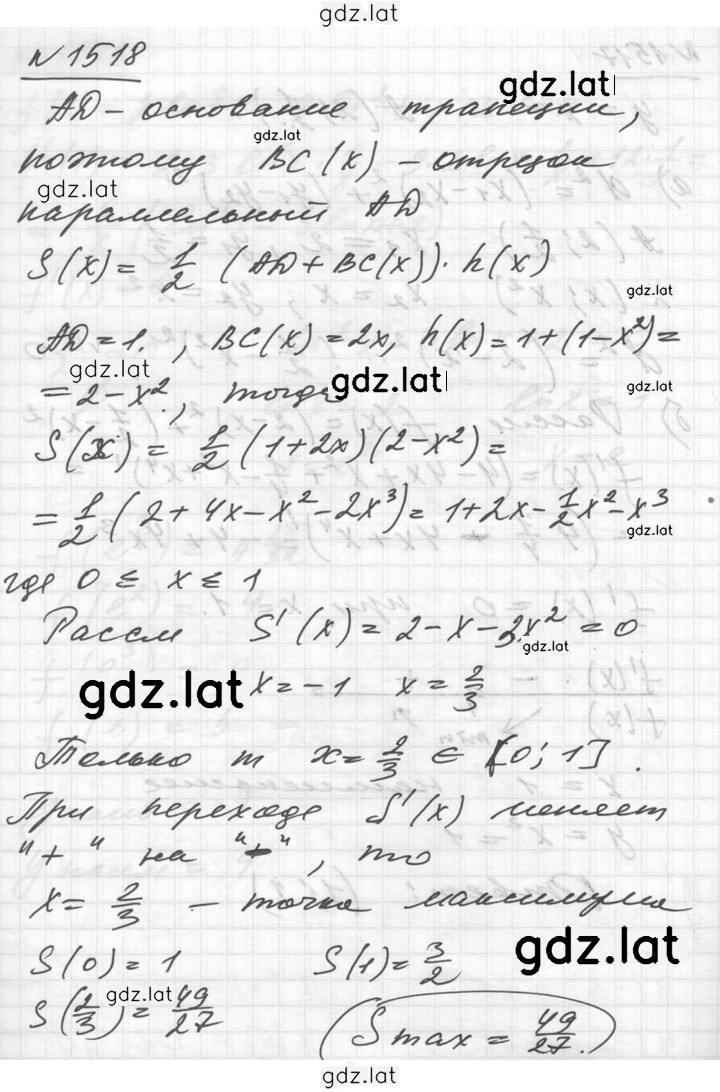 gdz.lat
№1518
gdz.lat
AD - основание трапеции,
gdz.lat
поэтому BC(x) - отрезок
gdz.lat
параллельный AD
S(x) = 1/2 (AD + BC(x)) · h(x)
gdz.lat
AD = 1. , BC(x) = 2x, h(x) = 1 + (1 - x²) =
gdz.lat gdz.lat gdz.lat
= 2 - x². , тогда
S(x) = 1/2 (1 + 2x)(2 - x²) =
= 1/2 (2 + 4x - x² - 2x³) = 1 + 2x - 1/2 x² - x³
gdz.lat
где 0 ≤ x ≤ 1
Рассм S'(x) = 2 - x - 3x² = 0
gdz.lat
gdz.lat x = -1 x = 2/3
Только т x = 2/3 ∈ [0; 1].
При переходе S'(x) меняет
"+" на "-", то
x = 2/3 - точка максимума
S(0) = 1 S(1) = 3/2
gdz.lat
gdz.lat
S(2/3) = 49/27 Smax = 49/27.
gdz.lat